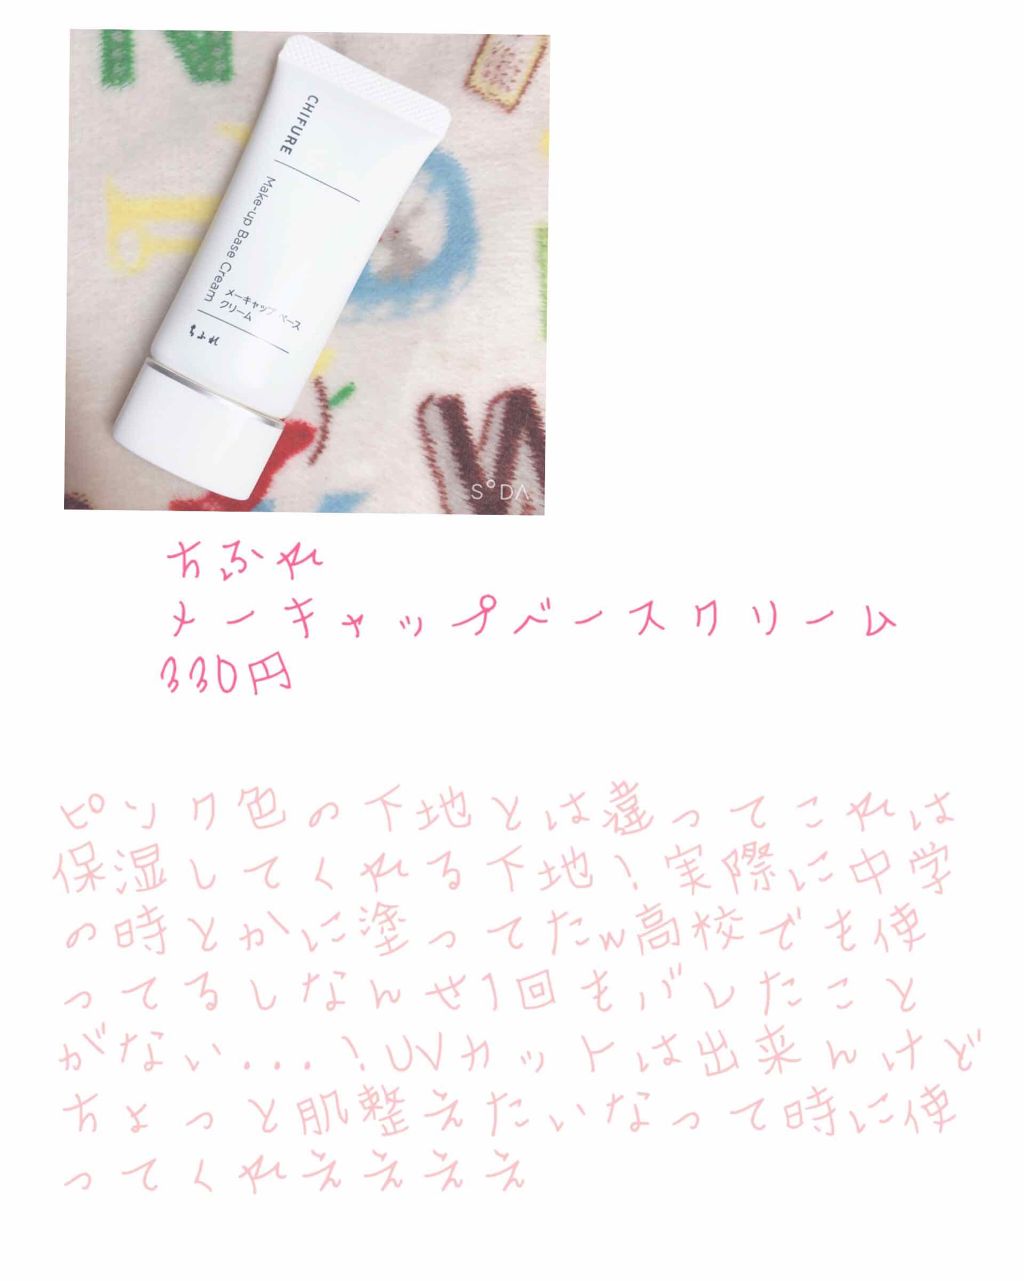 CHIFURE
Make-up Base Cream
メーキャップ ベース
クリーム
ちふれ
SODA
ちふれ
メーキャップベースクリーム
330円
ピンク色の下地とは違ってこれは
保湿してくれる下地!実際に中学
の時とかに塗ってたw高校でも使
ってるしなんせ1回もバレたこと
がない...!UVカットは出来んけど
ちょっと肌整えたいなって時に使
ってくれえええええ